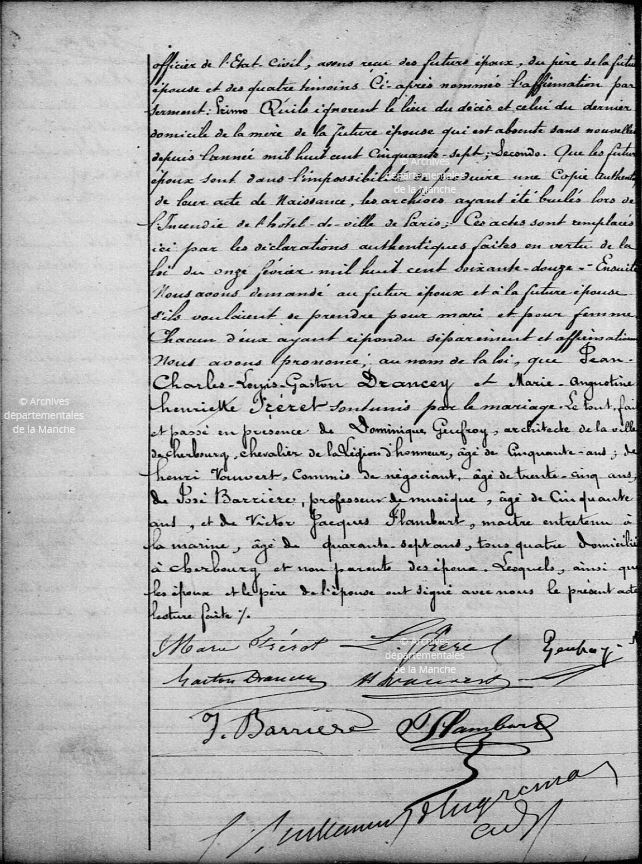 officier de l'Etat Civil, avons reçu des futurs époux, du père de la future
épouse et des quatre témoins Ci-après nommés l'affirmation par
serment: Primo. Qu'ils ignorent le lieu du décès et celui du dernier
domicile de la mère de la future épouse qui est absente sans nouvelles
depuis l'année mil huit cent Cinquante-sept; Secondo. Que les futurs
époux sont dans l'impossibilité de produire une Copie authentique
de leur acte de Naissance, les archives ayant été brulés lors de
l'Incendie de l'hôtel-de-ville de Paris; Ces actes sont remplacés
ici par les déclarations authentiques faites en vertu de la
loi du onze février mil huit cent soixante-douze - Ensuite
Nous avons demandé au futur époux et à la future épouse
s'ils voulaient se prendre pour mari et pour femme
Chacun d'eux ayant répondu séparément et affirmativement
Nous avons prononcé, au nom de la loi, que Jean-
Charles-Louis-Gaston Drancey et Marie-Augustine
henriette Fréret sont unis par le mariage. Le tout, fait
et passé en présence de Dominique Geufroy, architecte de la ville
de cherbourg, chevalier de la Légion d'honneur, âgé de Cinquante-ans; de
henri Vauvert, Commis de négociant, âgé de trente-cinq ans,
de José Barrière, professeur de musique, âgé de Cinquante
ans, et de Victor Jacques Flambart, maître entretenu à
la marine, âgé de quarante-sept ans, tous quatre domiciliés
à cherbourg et non parents des époux. Lesquels, ainsi que
les époux et le père de l'épouse ont signé avec nous le présent acte
lecture faite %.
Marie Fréret L. Fréret Geufroy
Gaston Drancey H Vauvert
J. Barrière Flambart
adj
© Archives
départementales
de la Manche
© Archives
départementales
de la Manche
© Archives
départementales
de la Manche